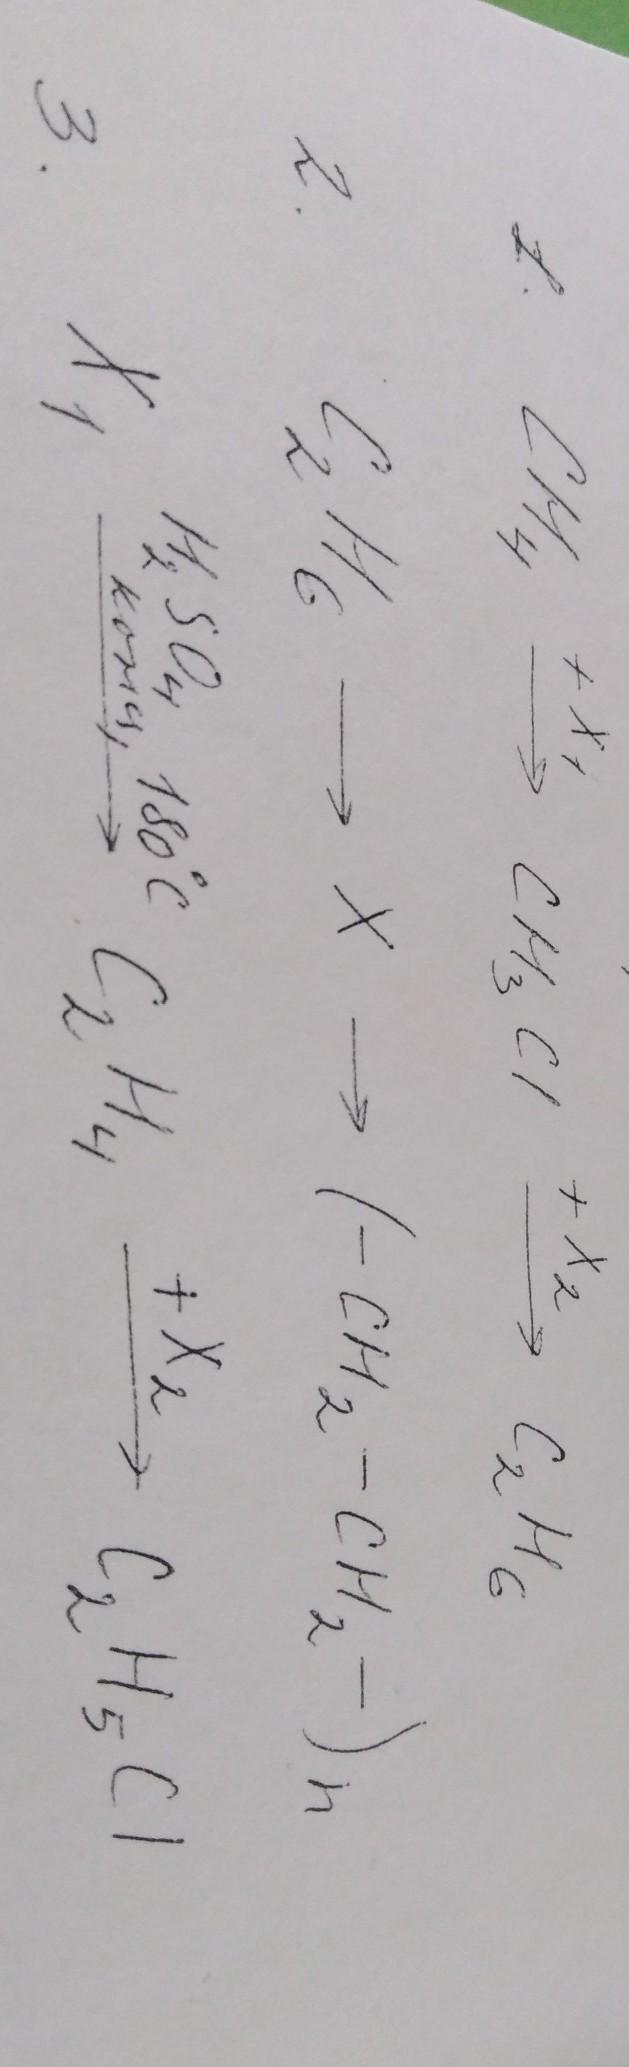 1. CH₄ →(+X₁) CH₃Cl →(+X₂) C₂H₆
2. C₂H₆ → X → (–CH₂–CH₂–)n
3. X₁ →(H₂SO₄ конц, 180°C) C₂H₄ →(+X₂) C₂H₅Cl